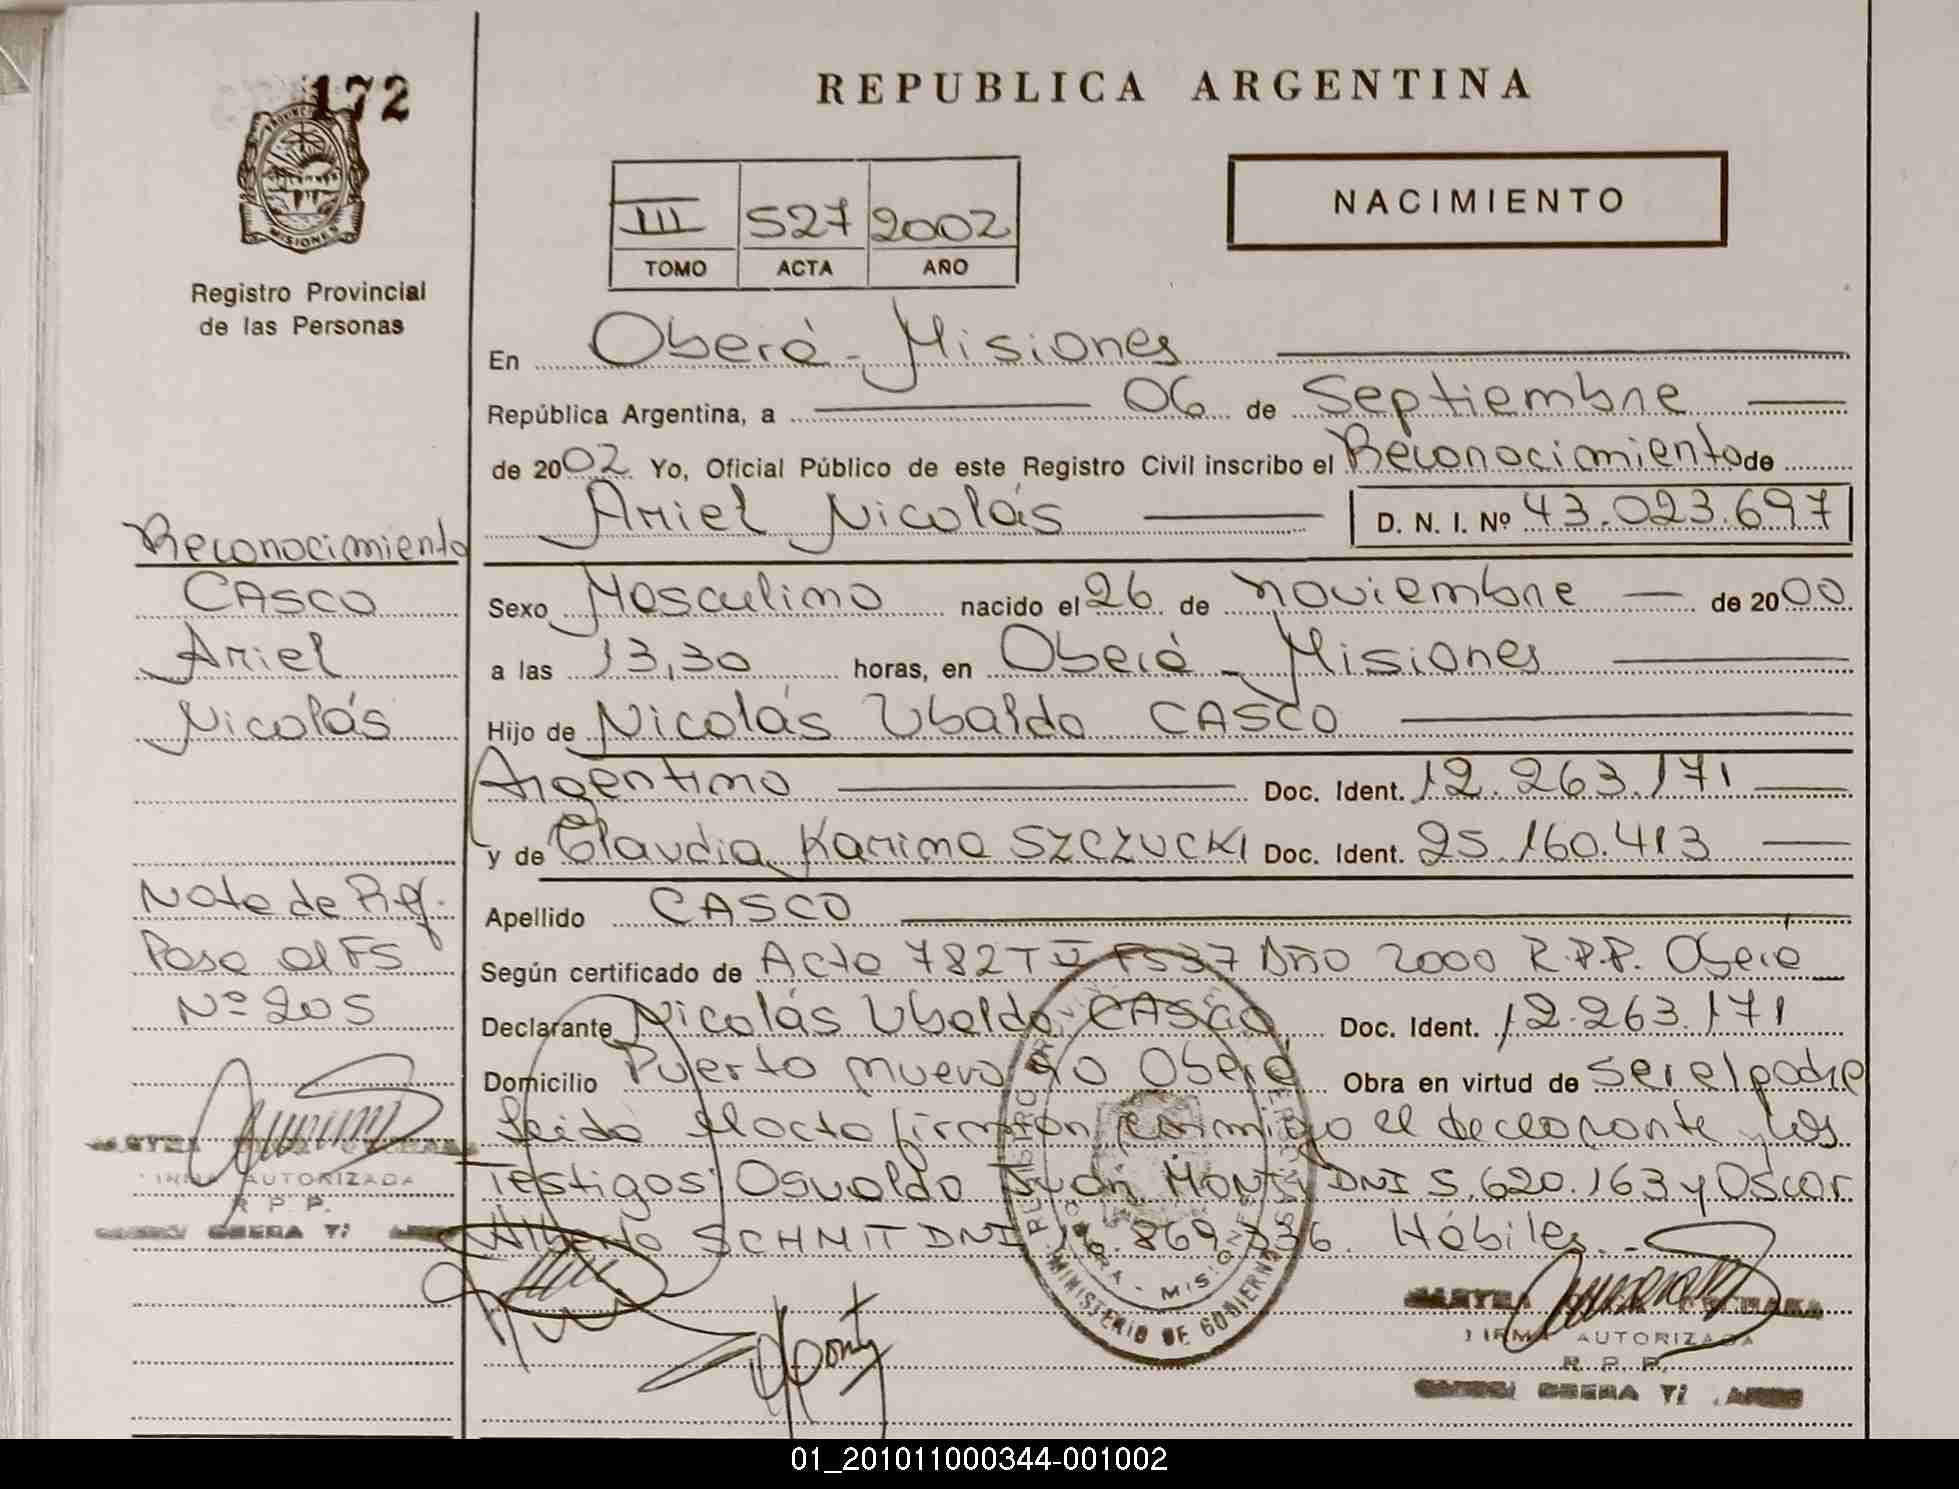 172
REPUBLICA ARGENTINA
NACIMIENTO
III 527 2002
TOMO ACTA AÑO
MISIONES
Registro Provincial
de las Personas
En Oberá - Misiones
República Argentina, a 06 de Septiembre
de 2002 Yo, Oficial Público de este Registro Civil inscribo el Reconocimiento de
Ariel Nicolás D. N. I. Nº 43.023.697
Reconocimiento
CASCO
Ariel
Nicolás
Sexo Masculino nacido el 26 de noviembre de 2000
a las 13,30 horas, en Oberá - Misiones
Hijo de Nicolás Ubaldo CASCO
Argentino Doc. Ident. 12.263.171
y de Claudia Karina SZCZUCKI Doc. Ident. 25.160.413
Apellido CASCO
Según certificado de Acta 782 T II F537 Año 2000 R.P.P. Oberá
Declarante Nicolás Ubaldo CASCO Doc. Ident. 12.263.171
Domicilio Puerto nuevo Oberá Obra en virtud de ser el padre
Leída el acta firman conmigo el declarante y los
Testigos Osvaldo Juan DNI 5.620.163 y Oscar
Alberto SCHMIT DNI Hábiles.-
Nota de Ref.
Pasa al FS
Nº 205
FIRMA AUTORIZADA
R. P. P.
OBERA
MINISTERIO DE GOBIERNO
MISIONES
FIRMA AUTORIZADA
R. P. P.
OBERA
01_201011000344-001002